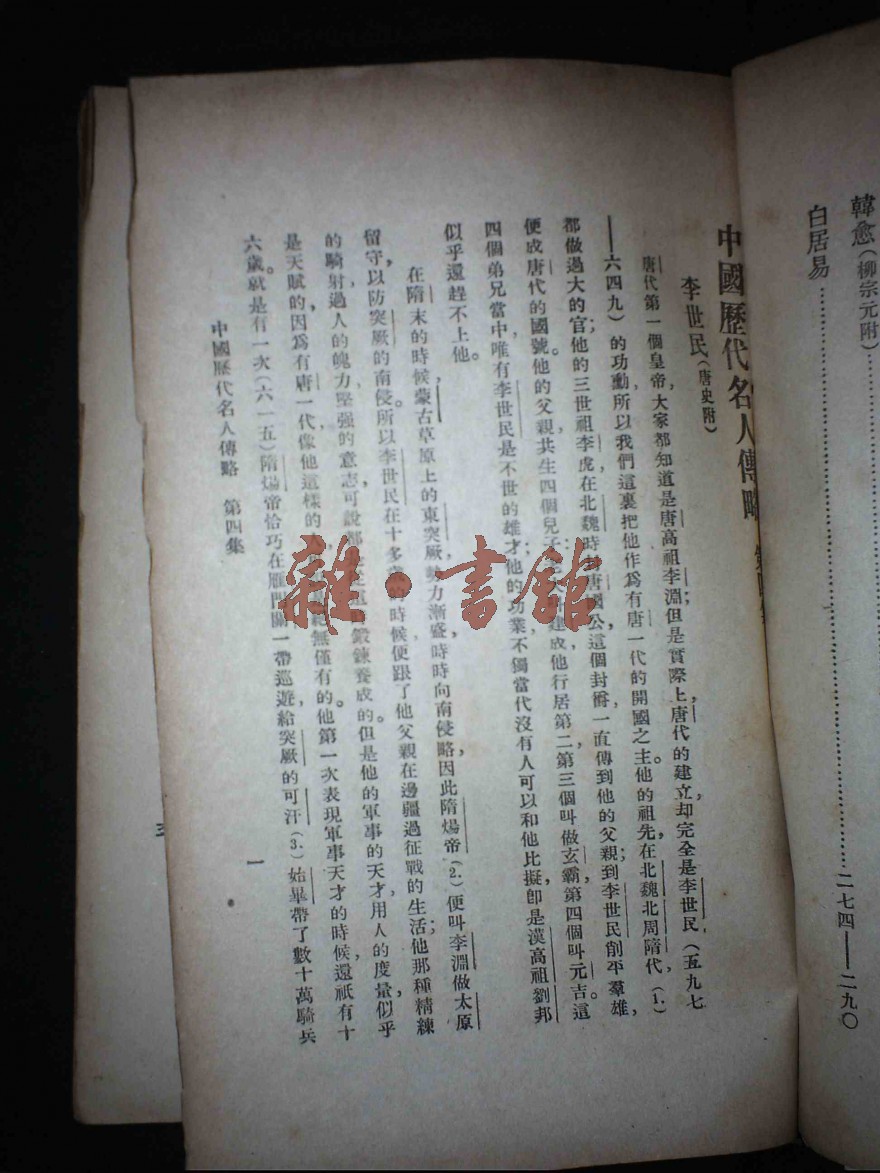 韓愈（柳宗元附）
白居易……………………二七四——二九〇
中國歷代名人傳略
李世民（唐史附）
唐代第一個皇帝，大家都知道是唐高祖李淵；但是實際上唐代的建立，却完全是李世民（五九七
——六四九）的功勳，所以我們這裏把他作爲有唐一代的開國之主。他的祖先，在北魏北周隋代，(1.)
都做過大的官；他的三世祖李虎，在北魏時封唐國公，這個封爵，一直傳到他的父親；到李世民削平羣雄，
便成唐代的國號。他的父親共生四個兒子
建成，他行居第二，第三個叫做玄霸，第四個叫元吉。這
四個弟兄當中，唯有李世民是不世的雄才；他的功業，不獨當代沒有人可以和他比擬，卽是漢高祖劉邦，
似乎還趕不上他。
在隋末的時候，蒙古草原上的東突厥，勢力漸盛，時時向南侵略，因此隋煬帝(2.)便叫李淵做太原
留守，以防突厥的南侵。所以李世民在十多歲的時候，便跟了他父親在邊疆過征戰的生活；他那種精練
的騎射，過人的魄力，堅强的意志，可說都是
鍛鍊養成的。但是他的軍事的天才，用人的度量，似乎
是天賦的，因爲有唐一代，像他這樣的
無僅有的。他第一次表現軍事天才的時候，還祇有十
六歲。就是有一次（六一五）隋煬帝恰巧在雁門關一帶巡遊，給突厥的可汗(3.)始畢帶了數十萬騎兵
中國歷代名人傳略　第四集
一
雜·書館